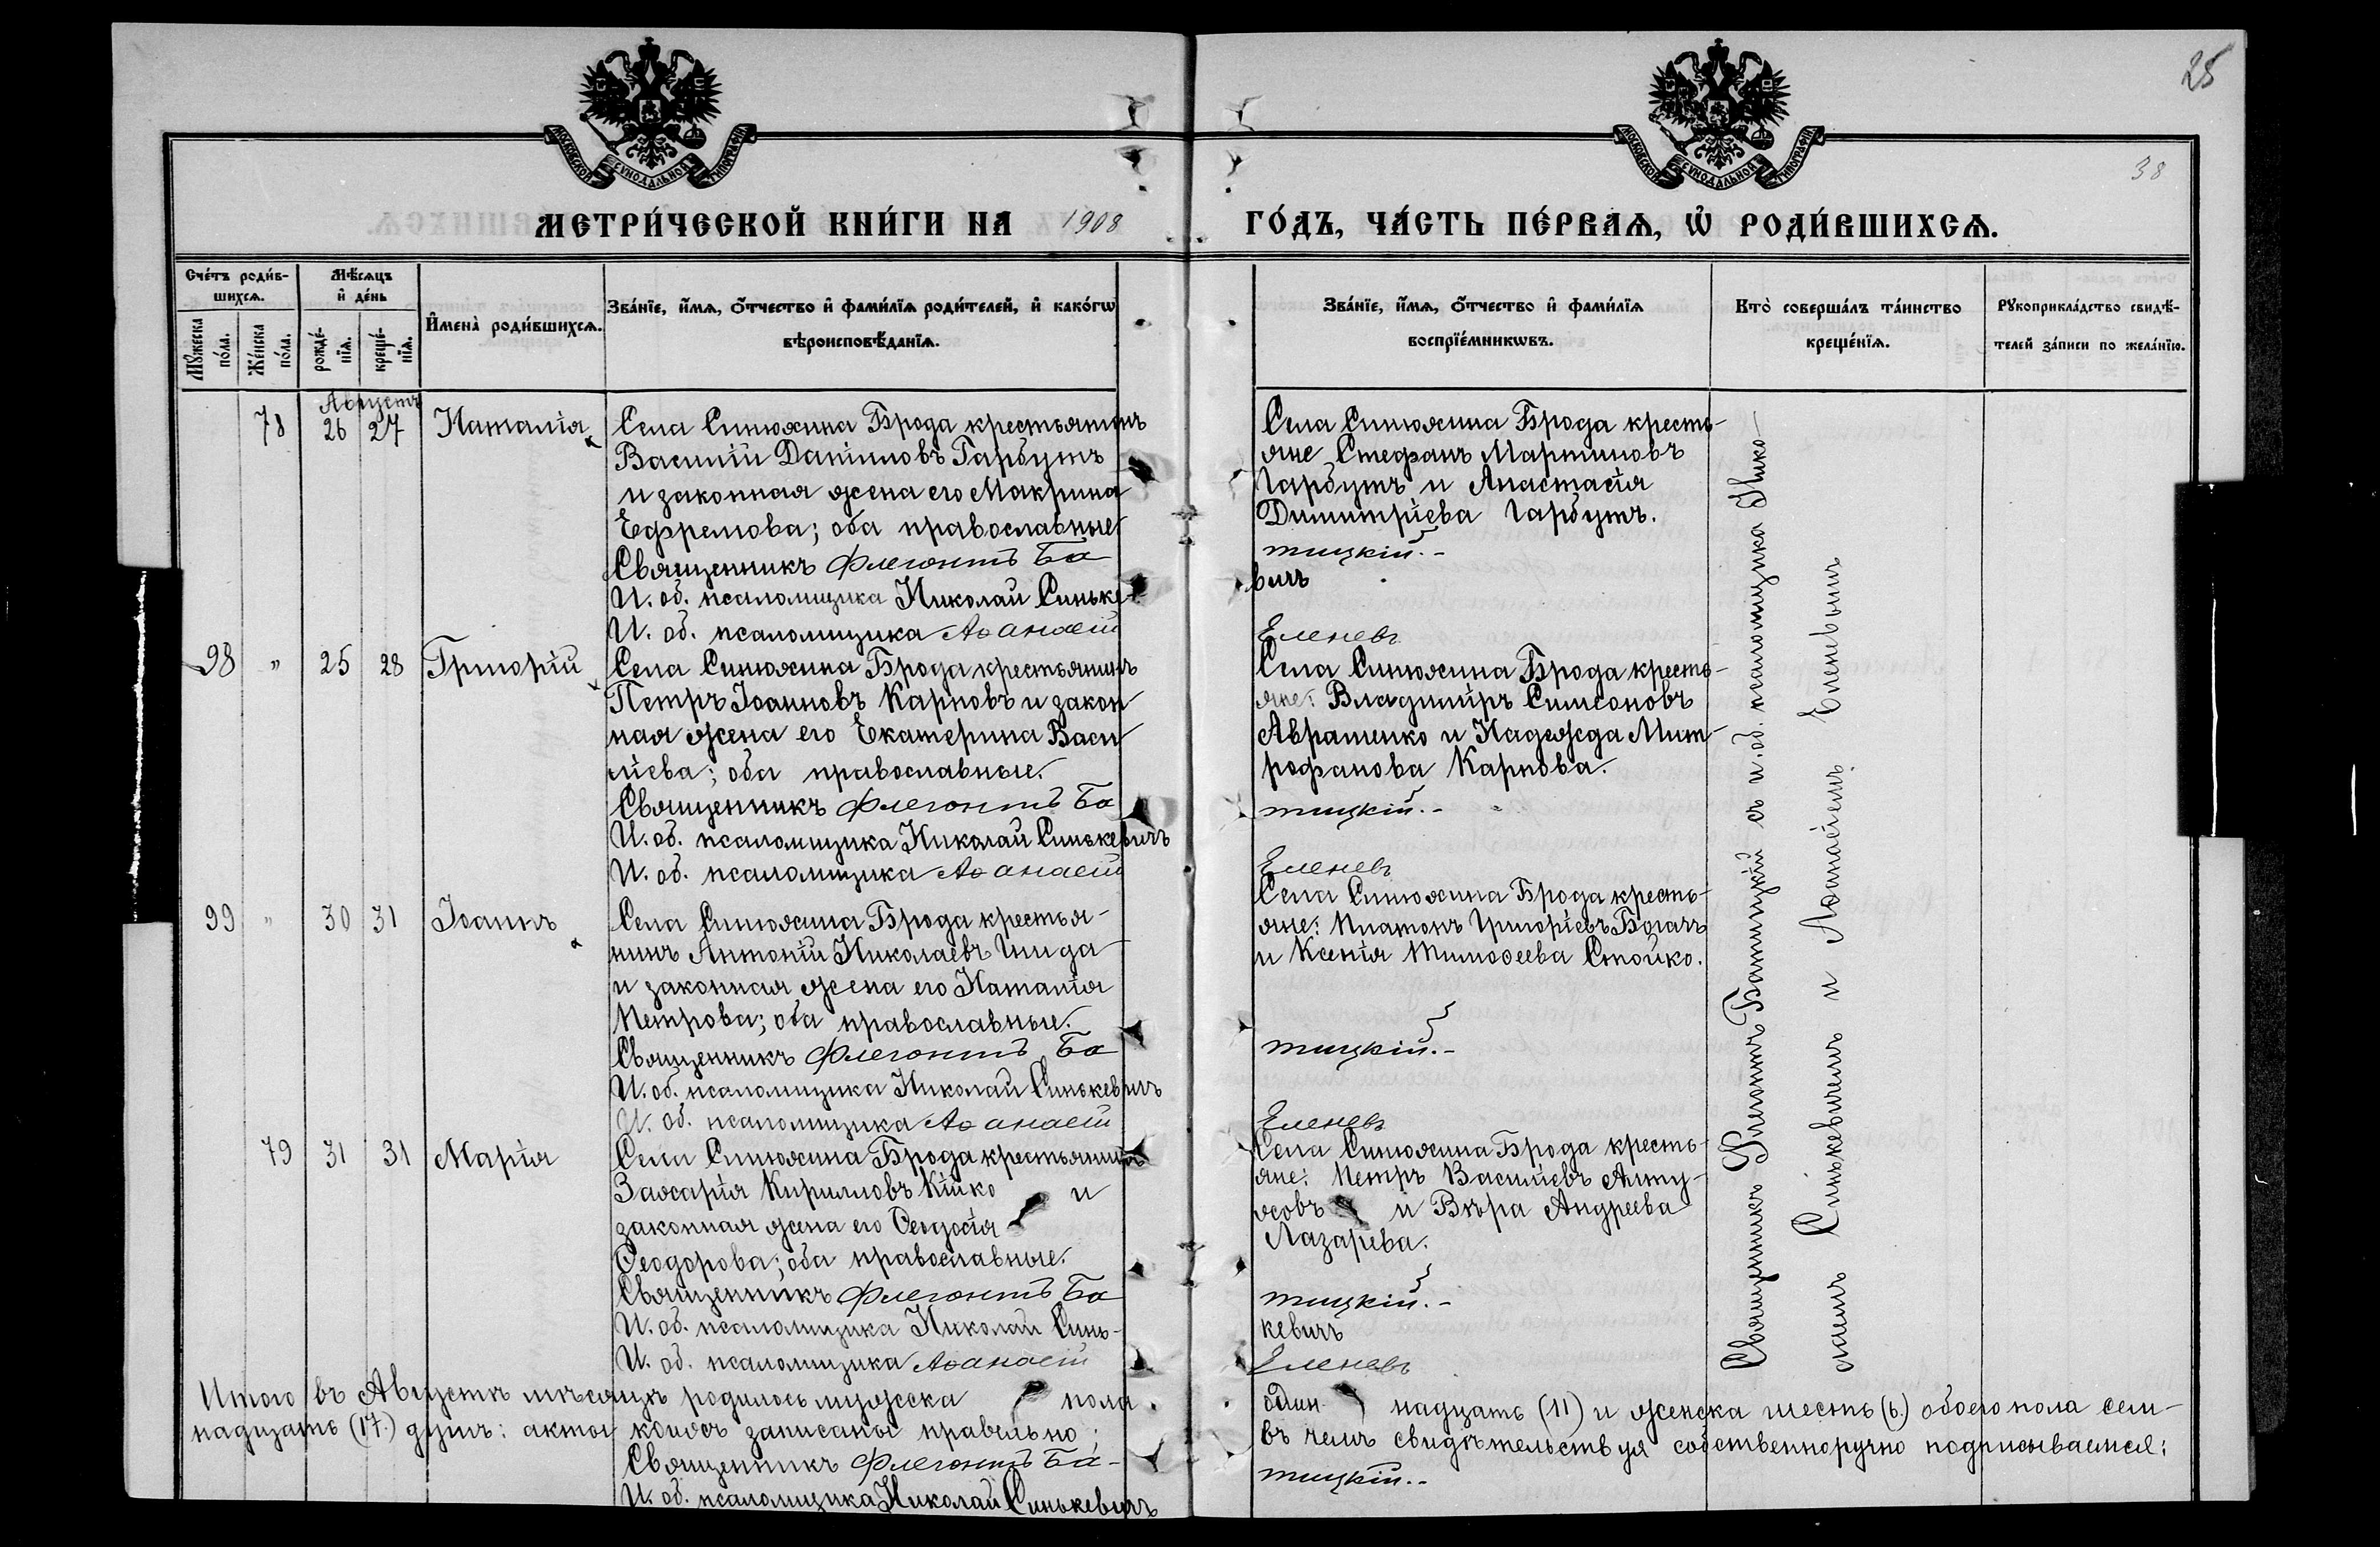 25
38
МОСКОВСКОЙ СѴНОДАЛЬНОЙ ТИПОГРАФІИ
МОСКОВСКОЙ СѴНОДАЛЬНОЙ ТИПОГРАФІИ
МЕТРИ́ЧЕСКОЙ КНИ́ГИ НА 1908 ГО́ДЪ, ЧА́СТЬ ПЕ́РВАѦ, Ѡ҆ РОДИ́ВШИХСѦ.
Сче́тъ роди́в-
шихсѧ.
Мꙋ́жеска по́ла.
Же́нска по́ла.
Мѣ́сяцъ
и҆ де́нь
рожде́-нїѧ.
креще́-нїѧ.
И҆мена̀ роди́вшихсѧ.
Зва́нїе, и҆́мѧ, ѻ҆́тчество и҆ фами́лїѧ роди́телей, и҆ како́гѡ
вѣроисповѣ́данїѧ.
Зва́нїе, и҆́мѧ, ѻ҆́тчество и҆ фами́лїѧ
воспрїе́мникѡвъ.
Кто̀ соверша́лъ та́инство
креще́нїѧ.
Рꙋкоприкла́дство свидѣ́-
телей за́писи по жела́нїю.
Августъ
78 26 27 Наталія
Села Синюхина Брода крестьянинъ
Василій Даніиловъ Гарбузъ
и законная жена его Макрина
Ефремова; оба православные
Священникъ Флегонтъ Ба
И. об. псаломщика Николай Синьке-
И. об. псаломщика Аѳанасій
Села Синюхина Брода кресть-
яне Стефанъ Мартиновъ
Гарбузъ и Анастасія
Димитріева Гарбузъ.
тицкій.-
вичъ
Еленевъ
98 " 25 28 Григорій
Села Синюхина Брода крестьянинъ
Петръ Іоанновъ Карповъ и закон
ная жена его Екатерина Васи
ліева; оба православные.
Священникъ Флегонтъ Ба
И. об. псаломщика Николай Синькевичъ
И. об. псаломщика Аѳанасій
Села Синюхина Брода кресть-
яне: Владиміръ Симеоновъ
Авраменко и Надежда Мит-
рофанова Карпова.
тицкій.-
Еленевъ
99 " 30 31 Іоаннъ
Села Синюхина Брода крестья-
нинъ Антоній Николаевъ
и законная жена его Наталія
Петрова; оба православные.
Священникъ Флегонтъ Ба
И. об. псаломщика Николай Синькевичъ
И. об. псаломщика Аѳанасій
Села Синюхина Брода кресть-
яне: Платонъ Григоріевъ Богачъ
и Ксенія Тимоѳеева Стойко.
тицкій.-
Еленевъ
79 31 31 Марія
Села Синюхина Брода крестьянинъ
Захарія Кирилловъ Кійко и
законная жена его Ѳеодосія
Ѳеодорова; оба православные.
Священникъ Флегонтъ Ба
И. об. псаломщика Николай Синь-
И. об. псаломщика Аѳанасій
Села Синюхина Брода кресть-
яне: Петръ Василіевъ
и Вѣра Андреева
Лазарева.
тицкій.-
кевичъ
Еленевъ
Священникъ Флегонтъ Батицкій съ и. об. псаломщика Нико-
лаемъ Синькевичемъ и Аѳанасіемъ Еленевымъ
Итого въ Августѣ мѣсяцѣ родилось мужеска пола один надцать (11) и женска шесть (6.) обоего пола сем-
надцать (17.) душъ: акты коихъ записаны правильно; въ чемъ свидѣтельствуя собственноручно подписываемся:
Священникъ Флегонтъ Ба- тицкій.-
И. об. псаломщика Николай Синькевичъ